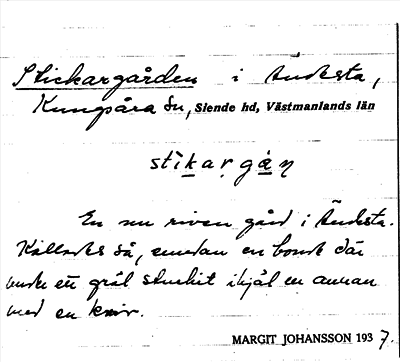 Stickargården i Ändesta,
Kungsåra sn, Siende hd, Västmanlands län
stìkaṛgán
En nu riven gård i Ändesta.
Kallades så, emedan en bonde där
under ett gräl stuckit ihjäl en annan
med en kniv.
MARGIT JOHANSSON 1937.